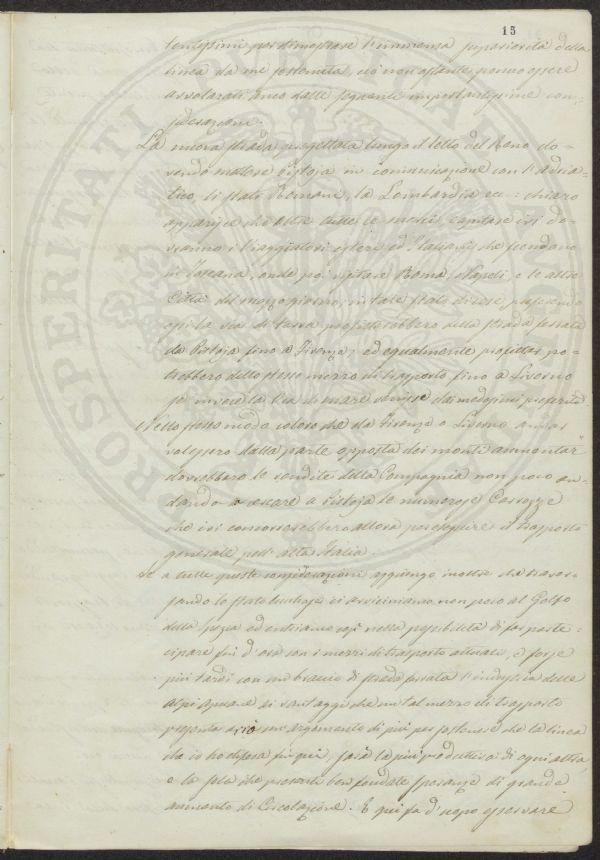 15
tentissimi per dimostrare l'immensa superiorità della
linea da me sostenuta, ciò non ostante ponno essere
avvalorati anco dalle seguenti importantissime con-
siderazioni.
La nuova strada progettata lungo il letto del Reno do-
vendo mettere Pistoja in comunicazione con l'Adria-
tico, li Stati Romani, la Lombardia ec: chiaro
apparisce che oltre tutte le merci, capitare ivi do-
vranno i Viaggiatori esteri ed Italiani, che scendono
in Toscana, onde poi visitare Roma, Napoli, e le altre
Città del mezzogiorno; in tale stato di cose preferendo
essi la via di terra profitterebbero della strada ferrata
da Pistoia fino a Firenze; ed egualmente profittar po-
trebbero dello stesso mezzo di trasporto fino a Livorno
se invece la via di mare venisse dai medesimi preferita
Nello stesso modo coloro che da Firenze o Livorno andar
volessero dalla parte opposta dei monti aumentar
dovrebbero le rendite della Compagnia non poco an-
dando a cercare a Pistoja le numerose Carrozze
che ivi concorrerebbero allora per eseguire il trasporto
generale per l'alta Italia.
Se a tutte queste considerazioni aggiungo inoltre che traver-
sando lo stato Lucchese ci avviciniamo non poco al Golfo
della Spezia ed entriamo così nella possibilità di far parte-
cipare fin d'ora con i mezzi di trasporto attuali, e forse
più tardi con un braccio di strada ferrata l'industria delle
Alpi Apuane ai vantaggi che un tal mezzo di trasporto
presenta avrò un argomento di più per sostenere che la linea
da io ho difesa fin qui, sarà la più produttiva di ogni altra,
e la sola che presenti ben fondate speranze di grande
aumento di Circolazione. E qui fa d'uopo osservare